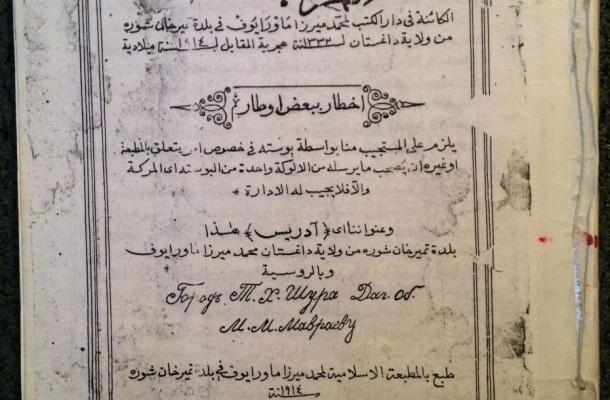 الكائنة فى دار الكتب لمحمد ميرزا ماورايوف فى بلدة تميرخان شوره
من ولاية داغستان لـ١٣٣٢ـنة هجرية المقابل لـ١٩١٤ـنة ميلادية
اخطار ببعض اوطار
يلزم على المستجيب منا بواسطة بوسته فى خصوص امر يتعلق بالمطبعة
او غيره ان يصحب ما يرسله من الالوكة واحدة من البوسته اى المركة
والآ فلا يجيب له الادارة *
وعنواننا اى (آدريس) هذا
بلدة تميرخان شوره من ولاية داغستان محمد ميرزا ماورايوف
وبالروسية
Городъ Т. Х. Шура Даг. об.
М. М. Мавраеву
طبع بالمطبعة الاسلامية لمحمد ميرزا ماورايوف فى بلدة تميرخان شوره
١٩١٤ـنة